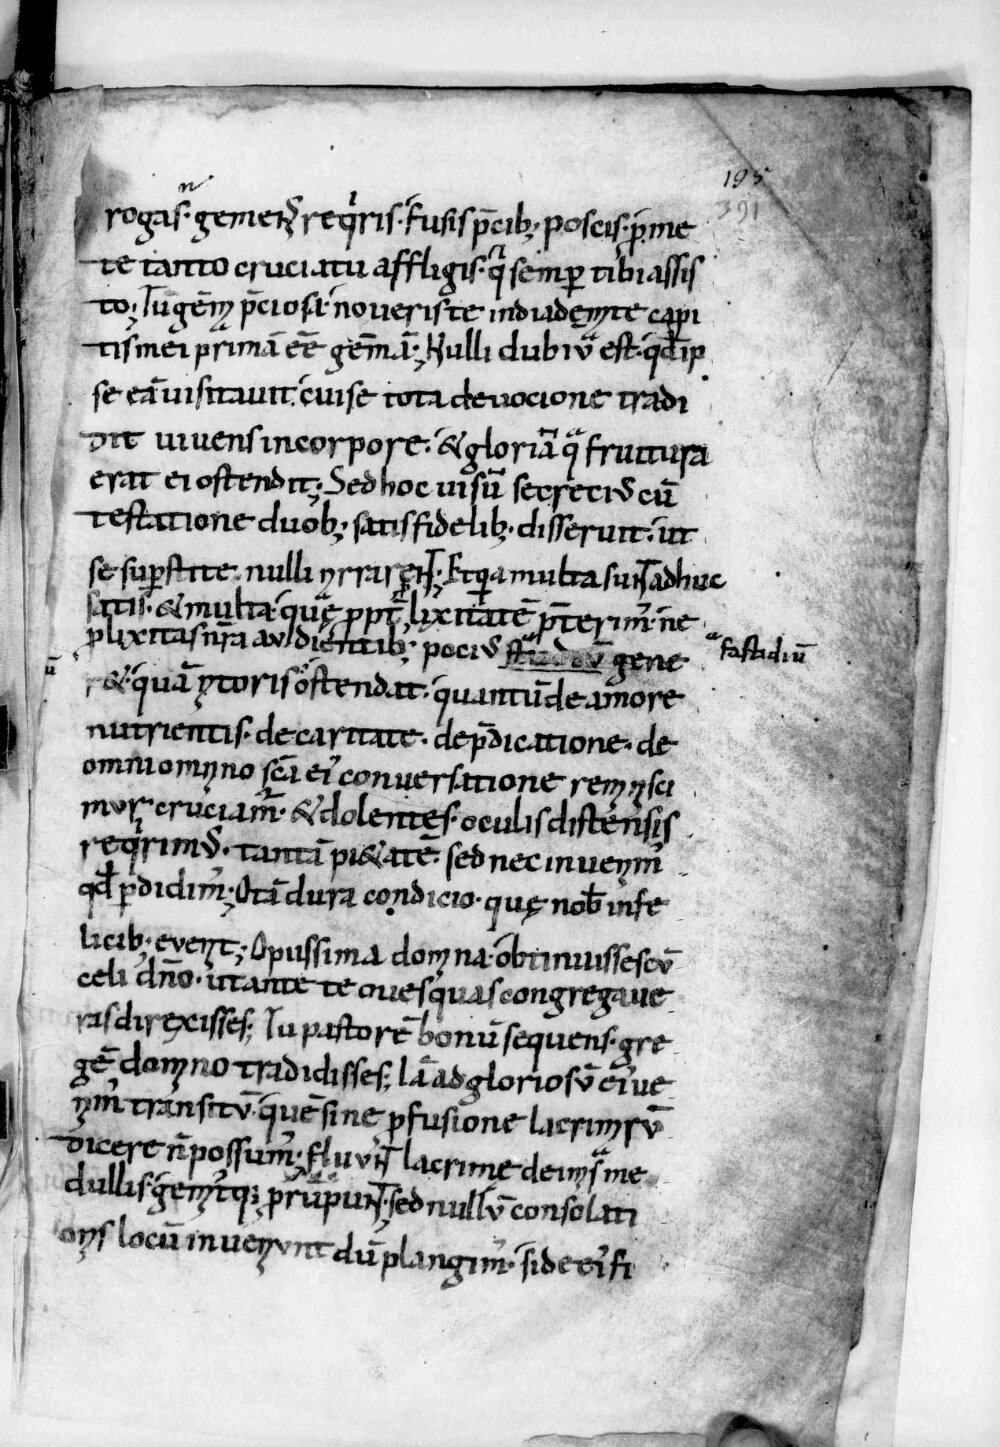 195
391
n
rogas· gemens reqͥris· fusis p̄cib; poscis· ꝓ me
te tanto cruciatu affligis· q̄ semꝑ tibi assis
to; Tu gēm p̄ciosa· noveris te in diademate capi
tis mei primā eē gem̄ā; Nulli dubiū est· qd̄ ip
se eā visitavit· cui se tota devocione tradi
dit vivens in corpore· & gloriā qͣ fruitura
erat ei ostendit; Sed hoc visū secreci᷒ cū
testatione duob; satis fidelib; disseruit· ut
se suꝑstite nulli narraret· Et qͥa multa sunt adhuc
satis· & multa· quę ꝓpt̄ lixitatē p̄terim᷒· ne
ꝓlixitas nr̄a audientib; poci᷒ gene
fastidiū
ū
r& quā ostendat· quantū de amore
nutrientis· de caritate· de p̄dicatione· de
omni omnino sc̄a ei᷒ conversatione reminisci
mur cruciam᷒· & dolentes· oculis distensis
reqͥrim᷒· tantā pi&atē· sed nec invenim᷒
qd̄ ꝑdidim᷒; O tā dura condicio· quę nob̄ infe
licib; evenit; O piissima domna· obtinuisses cū
celi dn̄o· ut ante te oves quas congregave
ras direxisses; Tu pastorē bonū sequens· gre
gē domno tradidisses; Iā ad gloriosū ei᷒ ve
nim᷒ transitū· quē sine ꝓfusione lacrimarū
dicere n̄ possum᷒· fluunt lacrime de imis me
dullis· gemit᷒q; prorūpunt· sed nullū consolati
onis locū inveniunt dū plangim᷒· si de ei᷒ fi